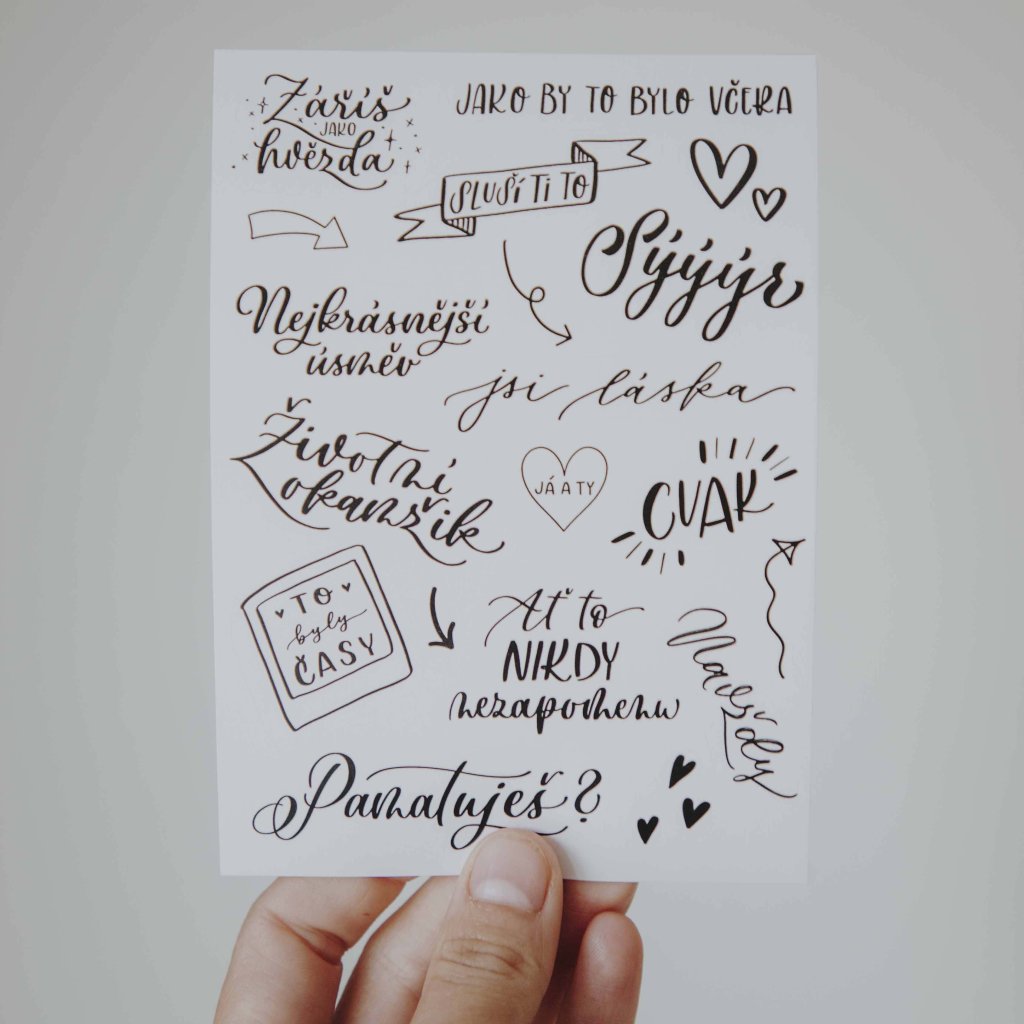 Záříš
JAKO
hvězda
JAKO BY TO BYLO VČERA
SLUŠÍ TI TO
Sýýýr
Nejkrásnější
úsměv
jsi láska
Životní
okamžik
JÁ A TY
CVAK
TO
byly
ČASY
Ať to
NIKDY
nezapomenu
Navždy
Pamatuješ?